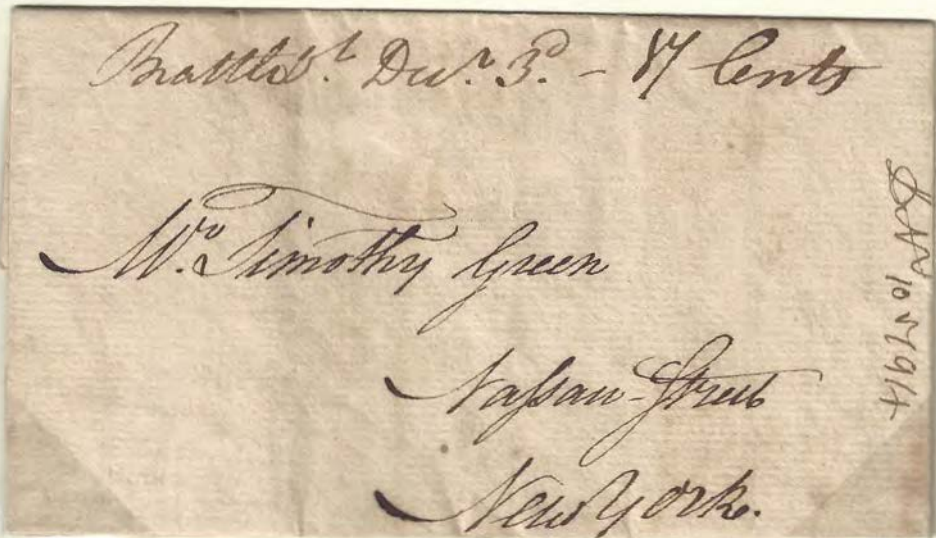 Brattleb.º Dec.r 3.d - 17 Cents
Mr. Timothy Green
Nassau-Street
New York.